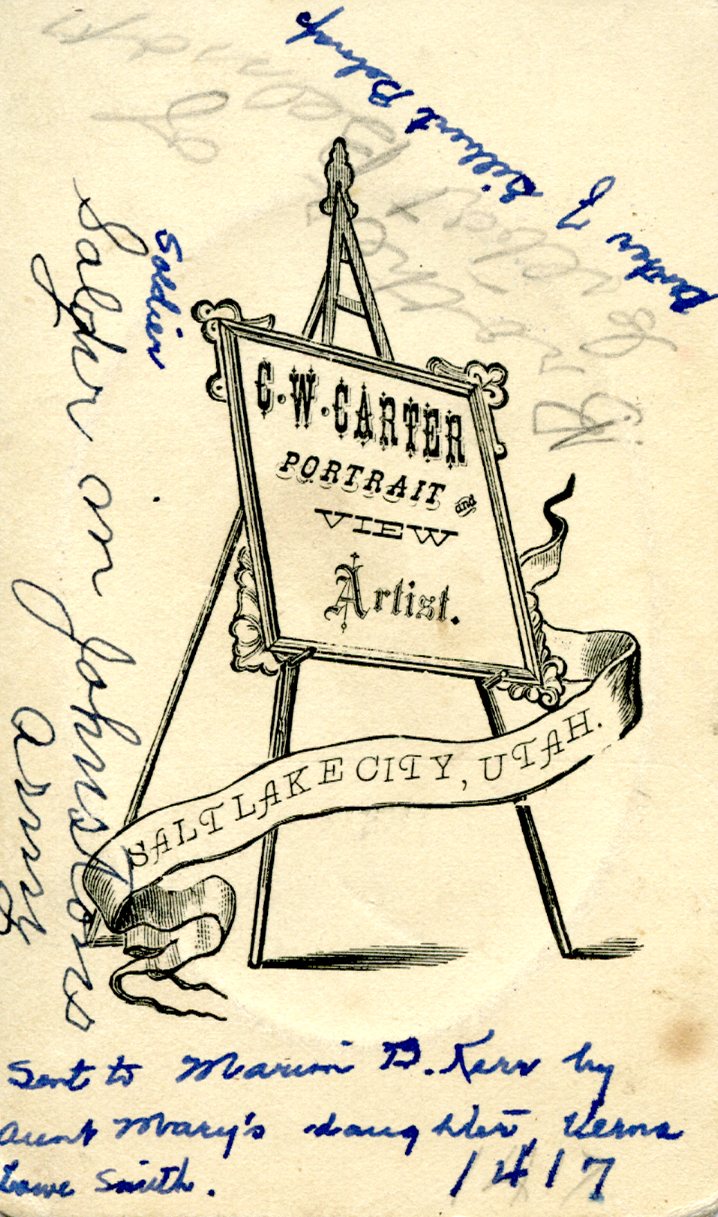 Brother of Gilbert Belnap
Brother of
Gilbert Belnap
Soldier
Salyhr in Johnstons
army
C.W. CARTER
PORTRAIT and
VIEW
Artist.
SALT LAKE CITY, UTAH.
Sent to Marion B. Kerr by
Aunt Mary's daughter, Verna
Lowe Smith. 1417